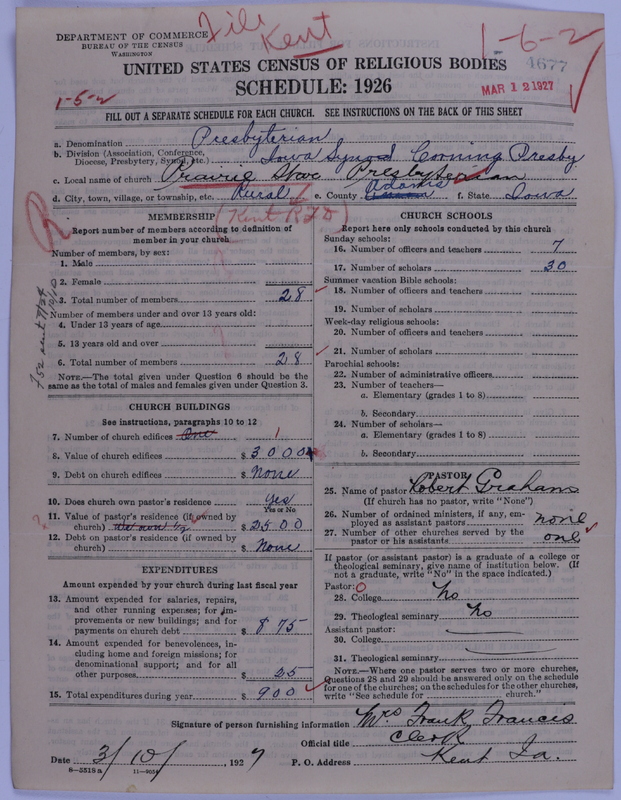 File
Kent
1-6-2
DEPARTMENT OF COMMERCE
BUREAU OF THE CENSUS
WASHINGTON
4677
UNITED STATES CENSUS OF RELIGIOUS BODIES
MAR 12 1927
SCHEDULE: 1926
1-5-2
FILL OUT A SEPARATE SCHEDULE FOR EACH CHURCH. SEE INSTRUCTIONS ON THE BACK OF THIS SHEET
a. Denomination Presbyterian
b. Division (Association, Conference, Diocese, Presbytery, Synod, etc.) Iowa Synod Corning Presby
c. Local name of church Prairie Presbyterian
d. City, town, village, or township, etc. Rural e. County Adams f. State Iowa
(Kent RFD)
MEMBERSHIP
Report number of members according to definition of
member in your church
Number of members, by sex:
1. Male
2. Female
3. Total number of members 28
Number of members under and over 13 years old:
4. Under 13 years of age
5. 13 years old and over
6. Total number of members 28
NOTE.—The total given under Question 6 should be the
same as the total of males and females given under Question 3.
CHURCH BUILDINGS
See instructions, paragraphs 10 to 12
7. Number of church edifices One 1
8. Value of church edifices $ 3000
9. Debt on church edifices $ None
10. Does church own pastor's residence yes
Yes or No
11. Value of pastor's residence (if owned by
church) $ 2500
12. Debt on pastor's residence (if owned by
church) $ None
EXPENDITURES
Amount expended by your church during last fiscal year
13. Amount expended for salaries, repairs,
and other running expenses; for im-
provements or new buildings; and for
payments on church debt $ 875
14. Amount expended for benevolences, in-
cluding home and foreign missions; for
denominational support; and for all
other purposes $ 25
15. Total expenditures during year $ 900
CHURCH SCHOOLS
Report here only schools conducted by this church
Sunday schools:
16. Number of officers and teachers 7
17. Number of scholars 30
Summer vacation Bible schools:
18. Number of officers and teachers
19. Number of scholars
Week-day religious schools:
20. Number of officers and teachers
21. Number of scholars
Parochial schools:
22. Number of administrative officers
23. Number of teachers—
a. Elementary (grades 1 to 8)
b. Secondary
24. Number of scholars—
a. Elementary (grades 1 to 8)
b. Secondary
PASTOR
25. Name of pastor Robert Graham
(If church has no pastor, write "None")
26. Number of ordained ministers, if any, em-
ployed as assistant pastors none
27. Number of other churches served by the
pastor or his assistants one
If pastor (or assistant pastor) is a graduate of a college or
theological seminary, give name of institution below. (If
not a graduate, write "No" in the space indicated.)
Pastor:
28. College No
29. Theological seminary No
Assistant pastor:
30. College
31. Theological seminary
NOTE.—Where one pastor serves two or more churches,
Questions 28 and 29 should be answered only on the schedule
for one of the churches; on the schedules for the other churches,
write "See schedule for church."
Signature of person furnishing information Mrs Frank Francis
Official title Clerk
Date 3/10/, 1927 P. O. Address Kent Ia.
8—5518a 11—9054